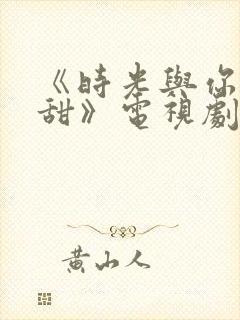 《時光與你
甜》電視劇
黃山人